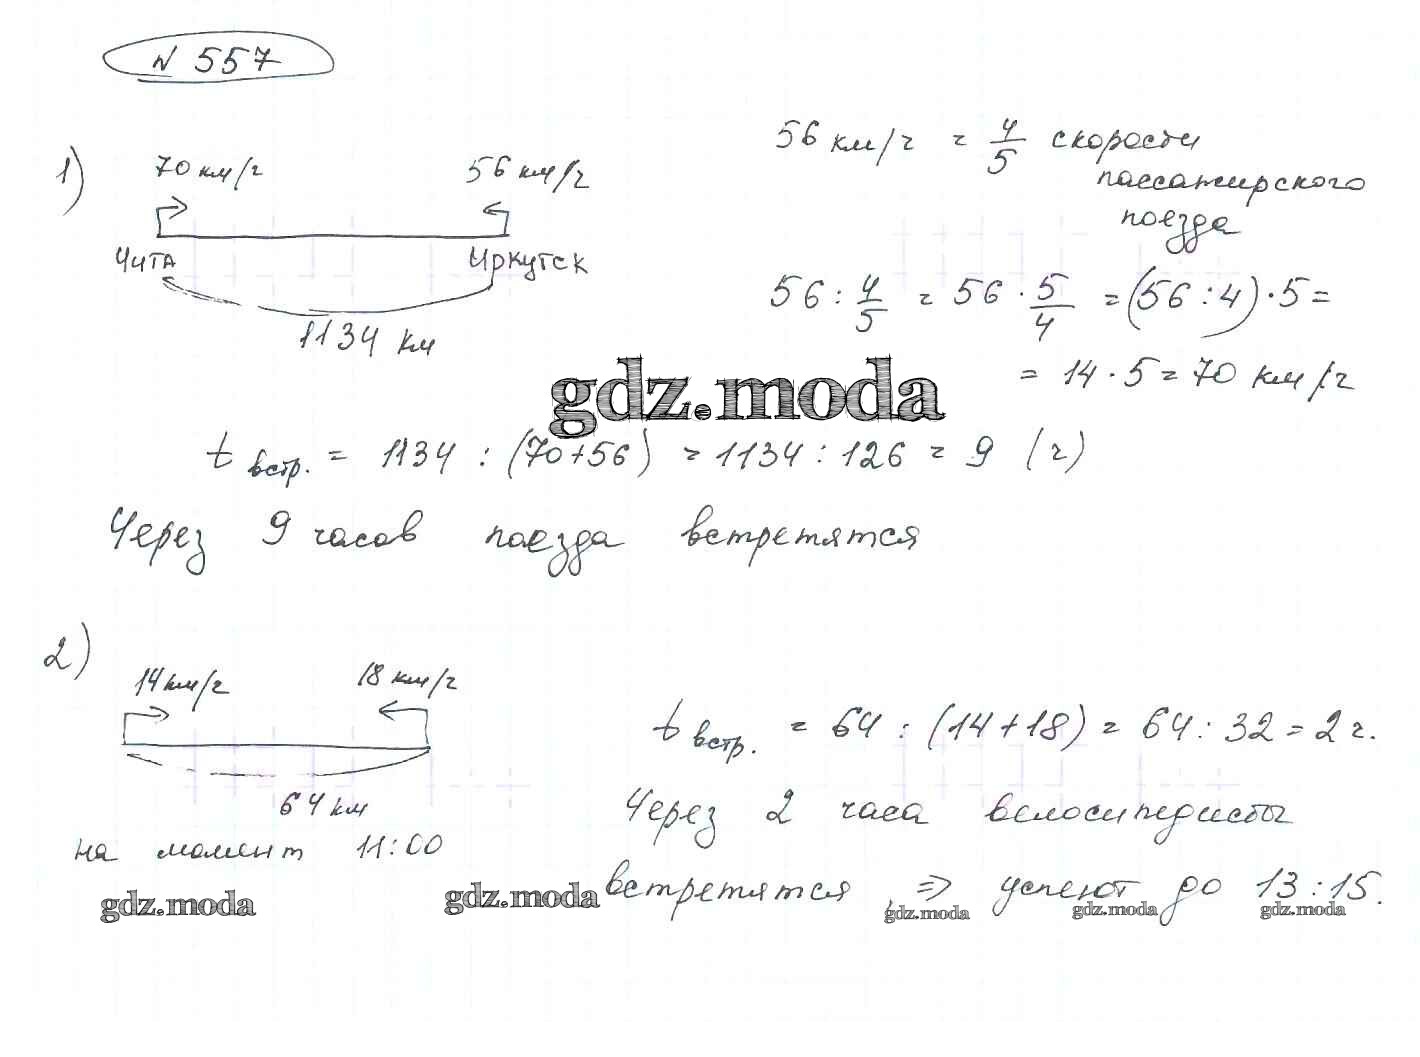 N 557
1)
70 км/г
56 км/г
Чита
Иркутск
1134 км
56 км/г = 4/5 скорости
пассажирского
поезда
56 : 4/5 = 56 · 5/4 = (56 : 4) · 5 =
= 14 · 5 = 70 км/г
gdz.moda
t встр. = 1134 : (70+56) = 1134 : 126 = 9 (г)
Через 9 часов поезда встретятся
2)
14 км/г
18 км/г
64 км
на момент 11:00
t встр. = 64 : (14+18) = 64 : 32 = 2 г.
Через 2 часа велосипедисты
встретятся, => успеют до 13:15.
gdz.moda
gdz.moda
gdz.moda
gdz.moda
gdz.moda